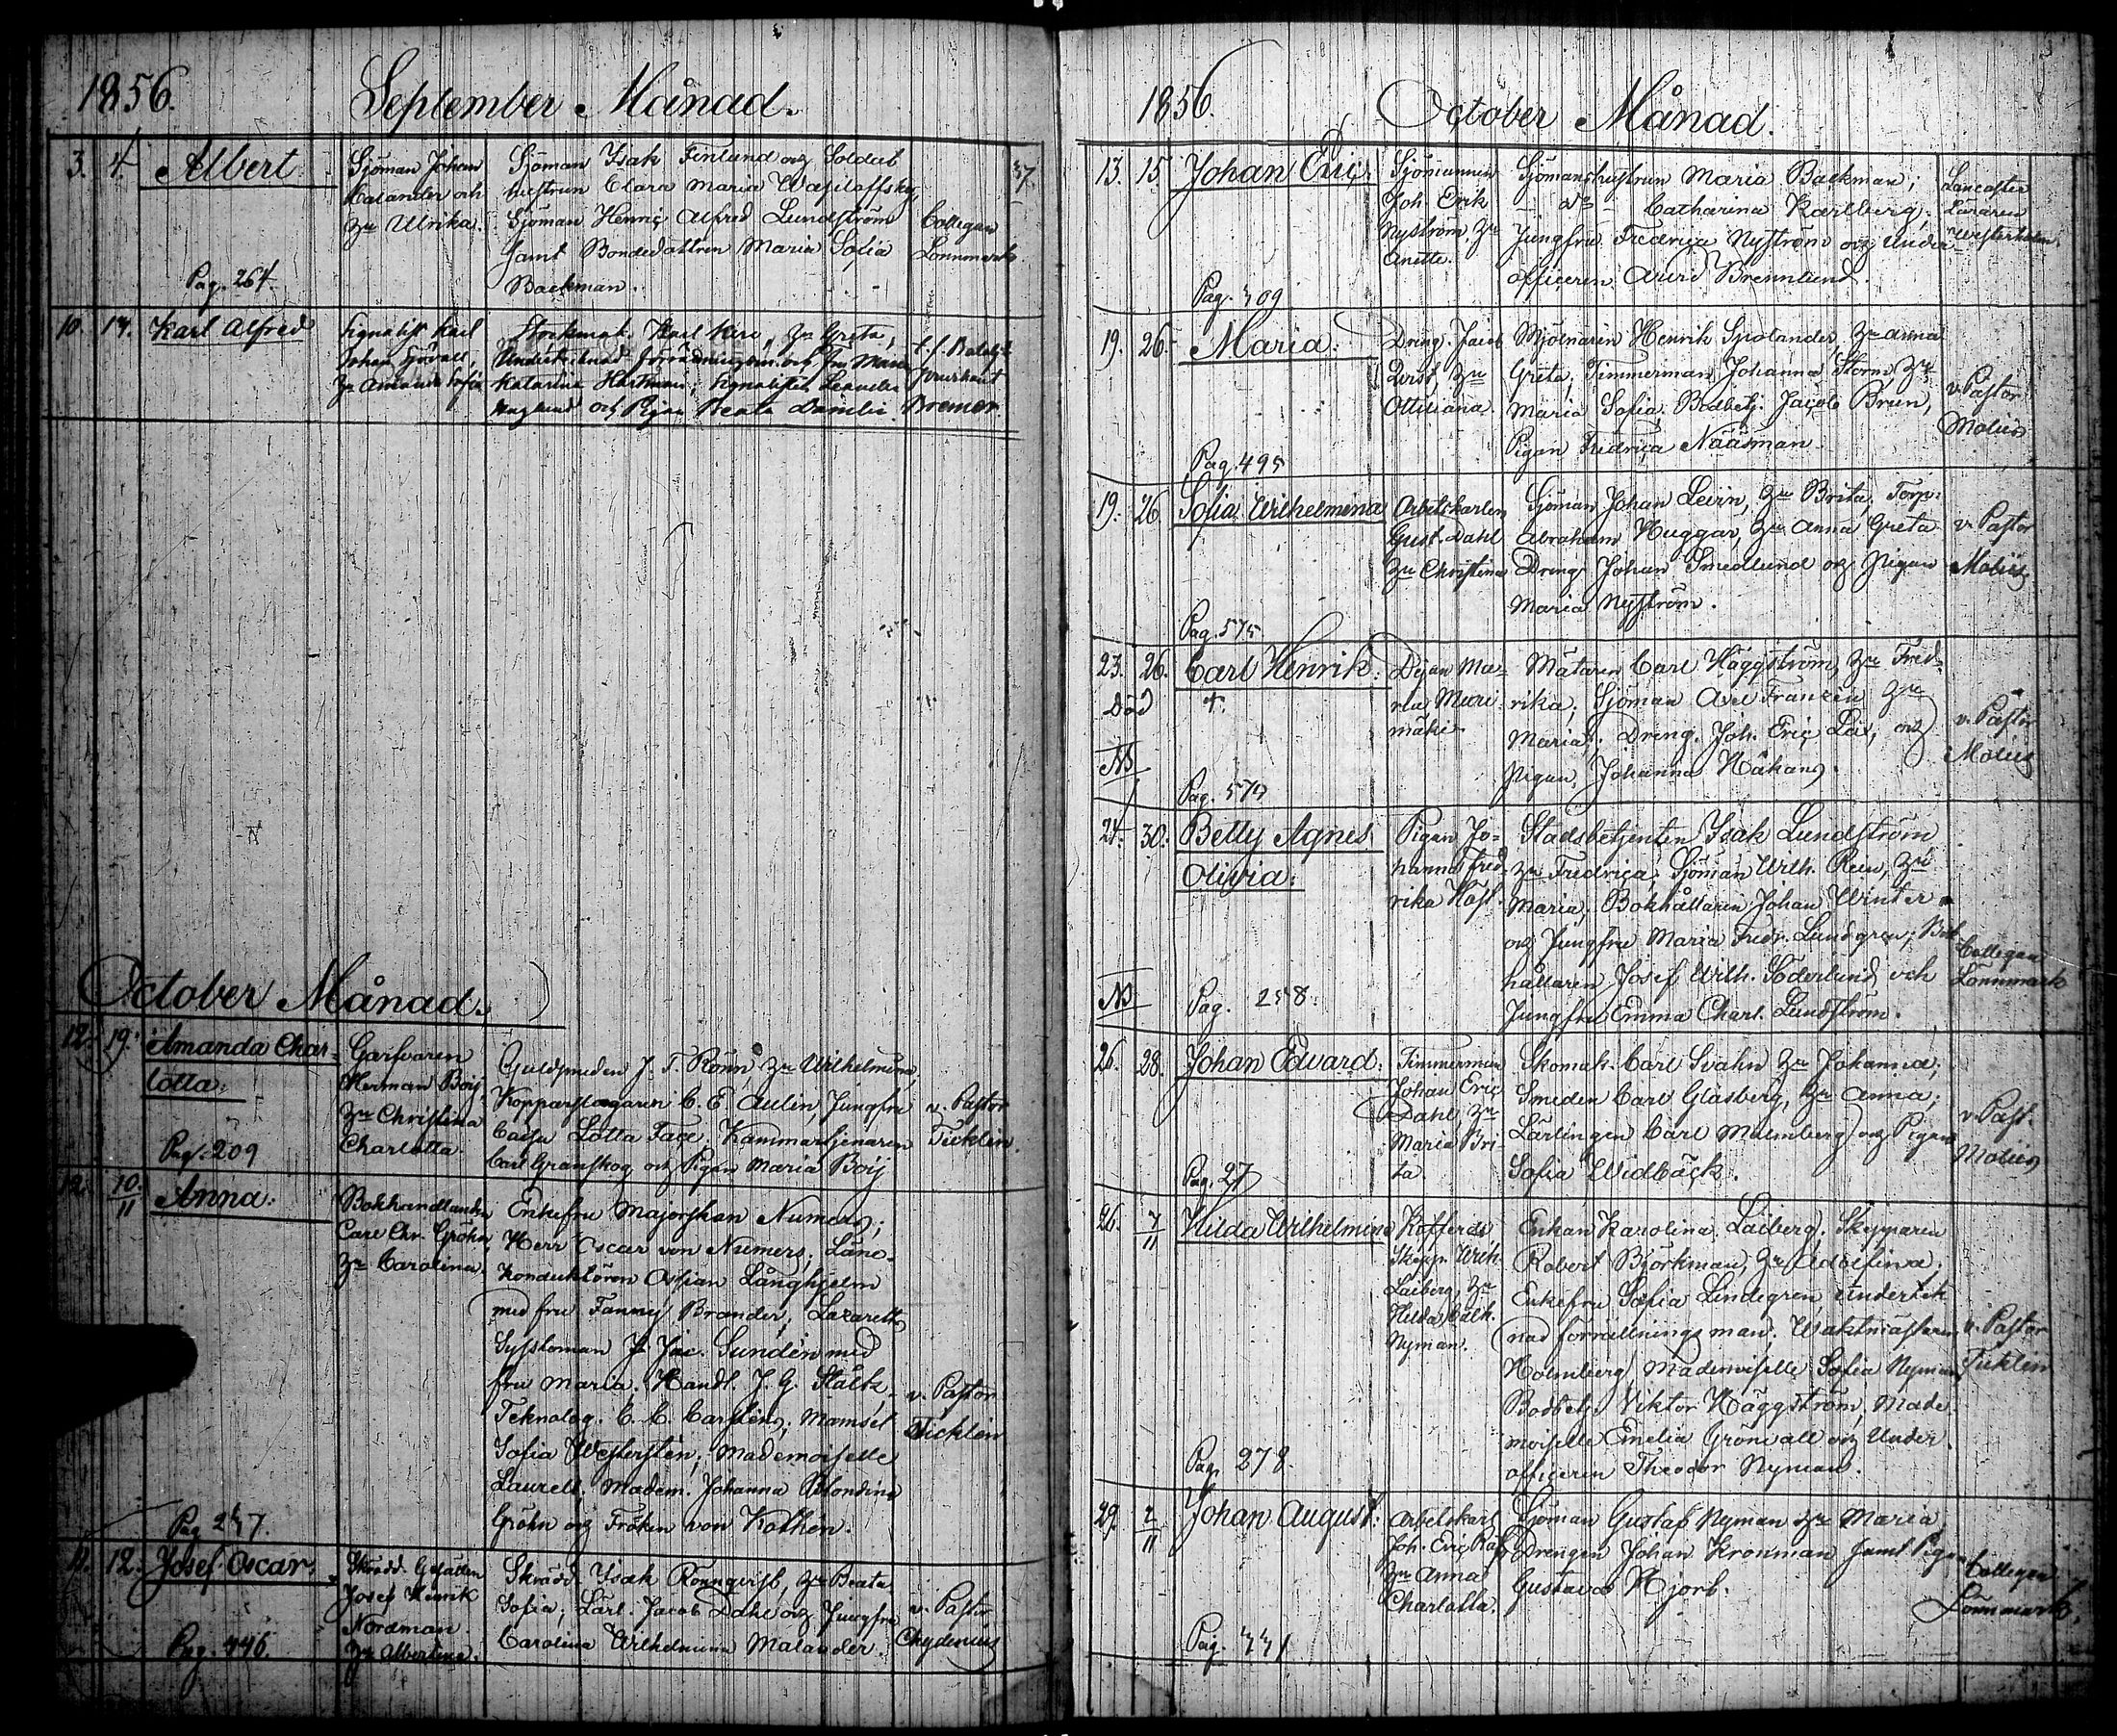 1856.
September Månad.
3. 4. Albert
Sjöman Johan
Calander och
Hu Ulrika.
Sjöman Isak Finlund och Soldats
hustrun Clara Maria
Sjöman Henric Alfred Lundström
samt Bondedottren Maria Sofia
Backman.
Collegan
Lönnmark
Pag. 264
10. 17. Karl Alfred
Signalist Karl
Johan
Hu Amanda Sofia
Karl Hu Greta,
och Fru Maria
Katarina Hartman; Signalisten Leander
och Pigan Beata
Bremer
October Månad.
12. 19. Amanda Char-
lotta.
Garfvaren
Herman Boij,
Hu Christina
Charlotta.
Guldsmeden J. F. Rönn, Hu Wilhelmina,
Kopparslagaren C. E. Aulin, Jungfru
Cajsa Lotta Kammartjenaren
Carl Granskog och Pigan Maria Boij
v. Pastor
Ticklén.
Pag. 209
12. 10/11 Anna.
Bokhandlanden
Carl Chr. Gröhn,
Hu Carolina.
Enkefru Majorskan Numers;
Herr Oscar von Numers; Läne-
konduktören Ossian Långhjelm
med fru Fanny Brander; Lazaretts
Syssloman J. Jac. Sundén med
fru Maria; Handl. J. G.
Teknolog. C. C. Carsténs; Mamsell
Sofia Westerstén; Mademoiselle
Laurell, Madem. Johanna Blondina
Gröhn och Fröken von Kothén.
v. Pastor
Ticklén
Pag 247.
11. 12. Josef Oscar.
Skrädd. Gesällen
Josef Henrik
Nordman.
Hu Albertina.
Skrädd. Isak Rönnqvist, Hu Beata
Sofia; Lärl. Jacob Dahl och Jungfru
Carolina Wilhelmina Malander.
v. Pastor
Chydenius
Pag. 446.
1856.
October Månad.
13. 15. Johan Eric.
Sjömannen
Joh. Erik
Nyström, Hu
Anette.
Sjömanshustrun Maria Backman;
- do - Catharina Karlberg;
Jungfru Fredrica Nyström och Under-
officeren Brennlund.
Läraren
Westerholm
Pag. 409
19. 26. Maria.
Dreng. Jacob
Qvist, Hu
Ottiliana.
Mjölnaren Henrik Sjölander, Hu Anna
Greta; Timmerman Johannes Storm, Hu
Maria Sofia; Bodbetj. Jacob Brun,
Pigan Fredrica Nääsman.
v. Pastor
Molius
Pag. 495
19. 26. Sofia Wilhelmina
Arbetskarlen
Gust. Dahl
Hu Christina
Sjöman Johan Levin, Hu Brita, Torp:
Abraham Huggar, Hu Anna Greta
Dreng Johan Smedlund och Pigan
Maria Nyström.
v. Pastor
Molius
Pag. 575
23. 26. Carl Henrik.
Död
Pigan Ma-
ria
mäki
Mätaren Carl Häggström, Hu Fred-
rika; Sjöman Axel Franzén Hu
Maria. Dreng. Joh. Eric och
Pigan Johanna Håkans.
v. Pastor
Molius
NB
Pag. 579
24. 30. Betty Agnes
Olivia.
Pigan Jo-
hanna Fred-
rika
Stadsbetjenten Isak Lundström
Hu Fredrica; Sjöman Wilh. Hu
Maria; Bokhållaren Johan Winter
och Jungfru Maria Fredr. Lundgren; Bok-
hållaren Josef Wilh. Söderlund och
Jungfru Emma Charl. Lundström.
Collegan
Lönnmark
NB
Pag. 258.
26. 28. Johan Edvard.
Timmerman
Johan Eric
Dahl, Hu
Maria Bri-
ta.
Skomak. Carl Svahn Hu Johanna;
Smeden Carl Glasberg, Hu Anna;
Lärlingen Carl Malmberg och Pigan
Sofia Widbäck.
v. Past.
Molius
Pag. 27
26. 7/11 Hilda Wilhelmina
Kofferdi
Skepp. Wilh.
Laiberg, Hu
Hilda Cath.
Nyman.
Enkan Karolina Laiberg; Skepparen
Robert Björkman, Hu Adolfina;
Enkefru Sofia Lindegren, underteck-
nad förrättningsman; Waktmästaren
Holmberg, Mademoiselle Sofia Nyman,
Bodbetj. Viktor Häggström, Made-
moiselle Emelia Grönvall och Under-
officeren Theodor Nyman.
v. Pastor
Ticklén
Pag. 278.
29. 2/11 Johan August.
Arbetskarl
Joh. Eric
Hu Anna
Charlotta.
Sjöman Gustaf Nyman Hu Maria,
Drengen Johan Kronman samt Pigan
Gustava Hjort.
Collegan
Lönnmark.
Pag. 441